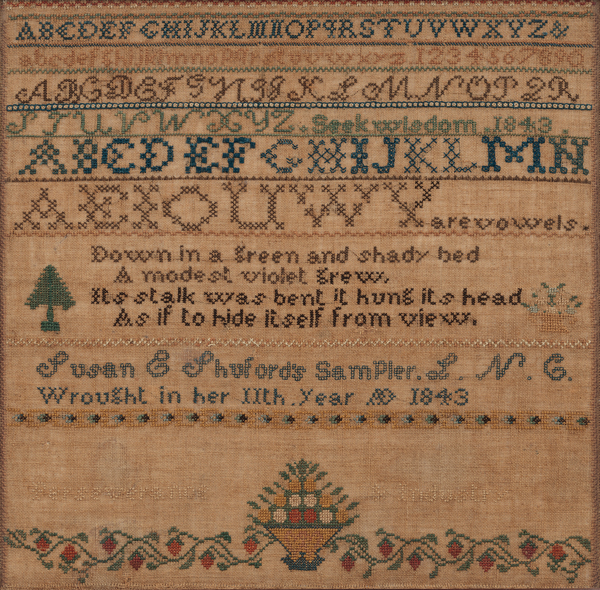 ABCDEFGHIJKLMNOPQRSTUVWXYZ&
ABCDEFGHIJKLMNOPQR
STUVWXYZ. Seek wisdom. 1843.
ABCDEFGHIJKLMN
AEIOUWY are vowels.
Down in a green and shady bed
A modest violet grew,
Its stalk was bent it hung its head
As if to hide itself from view.
Susan E Shufords Sampler. L. N. C.
Wrought in her 11th. Year AD 1843